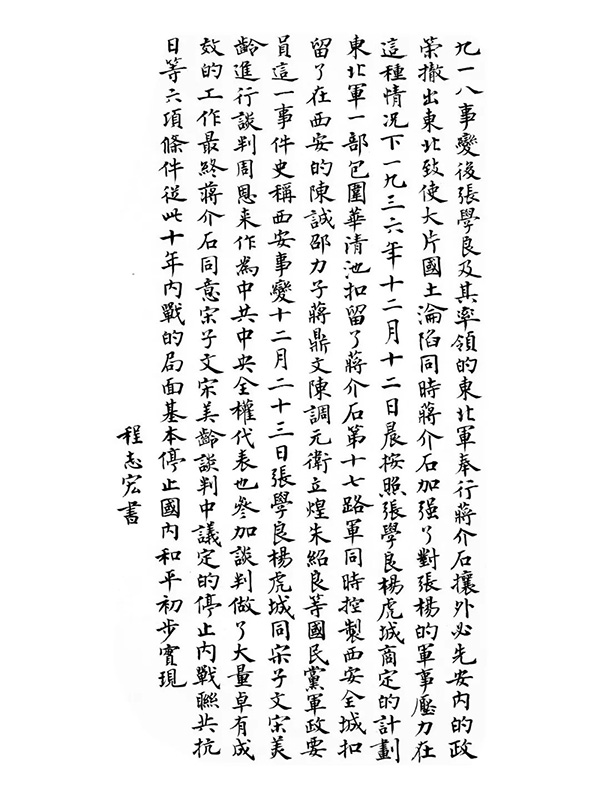 九一八事變後張學良及其率領的東北軍奉行蔣介石攘外必先安内的政
策撤出東北致使大片國土淪陷同時蔣介石加强了對張楊的軍事壓力在
這種情况下一九三六年十二月十二日晨按照張學良楊虎城商定的計劃
東北軍一部包圍華清池扣留了蔣介石第十七路軍同時控製西安全城扣
留了在西安的陳誠邵力子蔣鼎文陳調元衛立煌朱紹良等國民黨軍政要
員這一事件史稱西安事變十二月二十三日張學良楊虎城同宋子文宋美
齡進行談判周恩来作爲中共中央全權代表也叅加談判做了大量卓有成
效的工作最終蔣介石同意宋子文宋美齡談判中議定的停止内戰聯共抗
日等六項條件從此十年内戰的局面基本停止國内和平初步實現
程志宏書